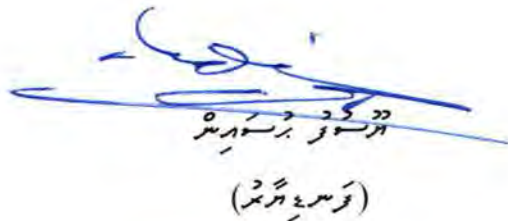 ޔޫސުފު ޙުސައިން
(ފަނޑިޔާރު)